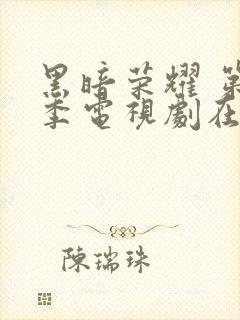 黑暗荣耀 第
季電視劇在
陳瑞珠